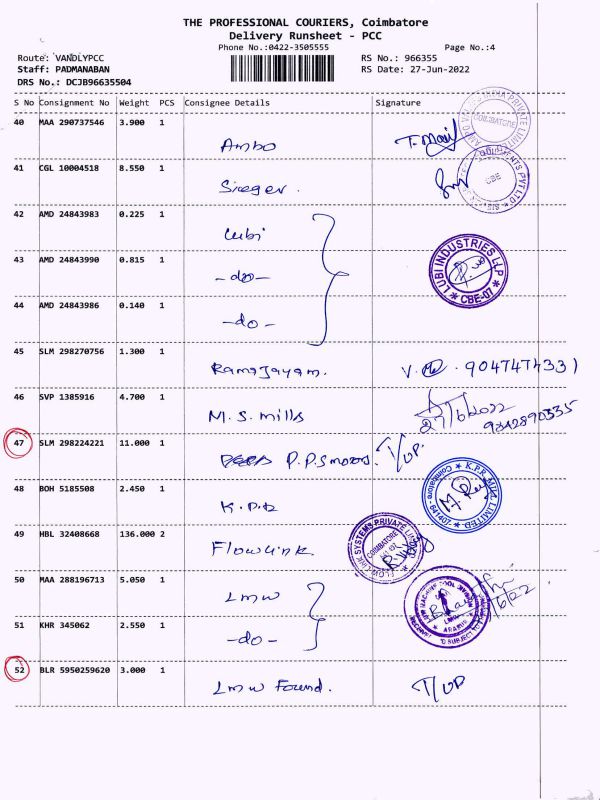 THE PROFESSIONAL COURIERS, Coimbatore
Delivery Runsheet - PCC
Phone No.:0422-3505555
Page No.:4
Route: VANDLYPCC
RS No.: 966355
Staff: PADMANABAN
RS Date: 27-Jun-2022
DRS No.: DCJB96635504
S No Consignment No Weight PCS Consignee Details Signature
40 MAA 290737546 3.900 1 Ambo
41 CGL 10004518 8.550 1 Sieger.
42 AMD 24843983 0.225 1 Lubi
43 AMD 24843990 0.815 1 -do-
LUBI INDUSTRIES LLP
CBE-07
44 AMD 24843986 0.140 1 -do-
45 SLM 298270756 1.300 1 Ramajayam. 9047474331
46 SVP 1385916 4.700 1 M.S. mills 27/6/2022
9842890335
47 SLM 298224221 11.000 1 P.P.S motors. T/UP.
48 BOH 5185508 2.450 1 K.P.R
K.P.R. MILL LIMITED
Coimbatore - 641407
49 HBL 32408668 136.000 2 Flowlink
FLOWLINK SYSTEMS PRIVATE LIMITED
COIMBATORE
641 107
50 MAA 288196713 5.050 1 LMW
51 KHR 345062 2.550 1 -do-
52 BLR 5950259620 3.000 1 LMW Found. T/UP